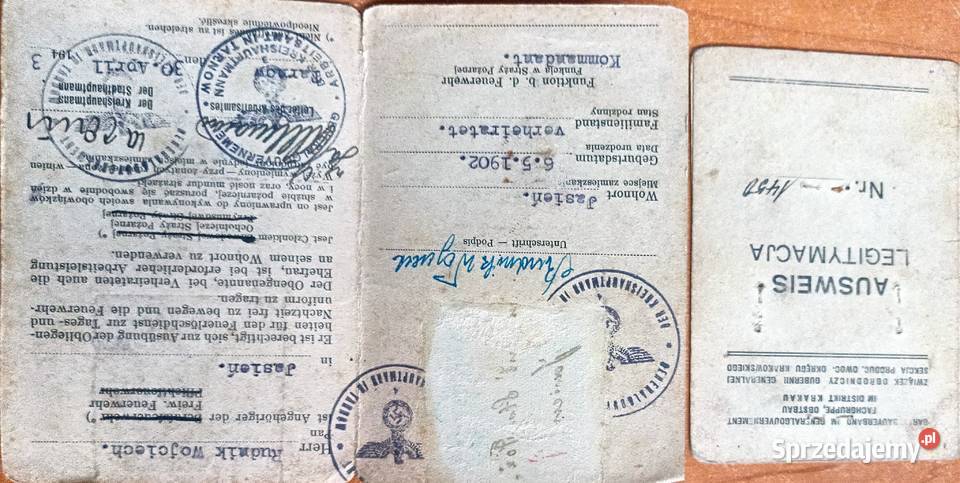 BAUVERBAND IM GENERALGOUVERNEMENT
FACHGRUPPE, OBSTBAU
IM DISTRIKT KRAKAU
ZWIĄZEK OGRODNICZY GUBERNII GENERALNEJ
SEKCJA PRODUC. OWOC. OKRĘGU KRAKOWSKIEGO
AUSWEIS
LEGITYMACJA
Nr.
DER KREISHAUPTMANN IN
GENERALGOUV
Unterschrift — Podpis
Wohnort Jasień.
Miejsce zamieszkania
Geburtsdatum 6.5.1902.
Data urodzenia
Familienstand verheiratet.
Stan rodzinny
Funktion b. d. Feuerwehr
Funkcja w Straży Pożarnej
Kommandant.
Herr
Pan Rudnik Wojciech.
ist Angehöriger der Berufsfeuerwehr *)
Freiw. Feuerwehr
Pflichtfeuerwehr
in Jasień.
Er ist berechtigt, sich zur Ausübung der Obliegen-
heiten für den Feuerlöschdienst zur Tages- und
Nachtzeit frei zu bewegen und die Feuerwehr-
uniform zu tragen.
Der Obengenannte, bei Verheirateten auch die
Ehefrau, ist bei erforderlicher Arbeitsleistung
an seinem Wohnort zu verwenden.
Jest Członkiem Zawodowej Straży Pożarnej *)
Ochotniczej Straży Pożarnej
Przymusowej Straży Pożarnej
Jest on uprawniony do wykonywania swoich obowiązków
w służbie pożarniczej, poruszać się swobodnie w dzień
i w nocy, oraz nosić mundur strażacki.
Wyżej wymieniony — przy żonatych
Tarnow, den 30. April 194 3
Der Kreishauptmann
Der Stadthauptmann
Leiter des Arbeitsamtes
GENERALGOUVERNEMENT
DER KREISHAUPTMANN
ARBEITSAMT IN TARNOW
*) Nichtz. ist zu streichen.
Nieodpowiednie skreślić.
Sprzedajemy.pl